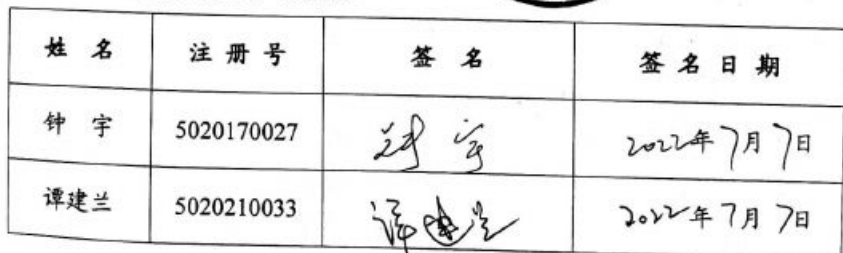 姓 名 注 册 号 签 名 签 名 日 期
钟 宇 5020170027 钟宇 2022年7月7日
谭建兰 5020210033 谭建兰 2022年7月7日